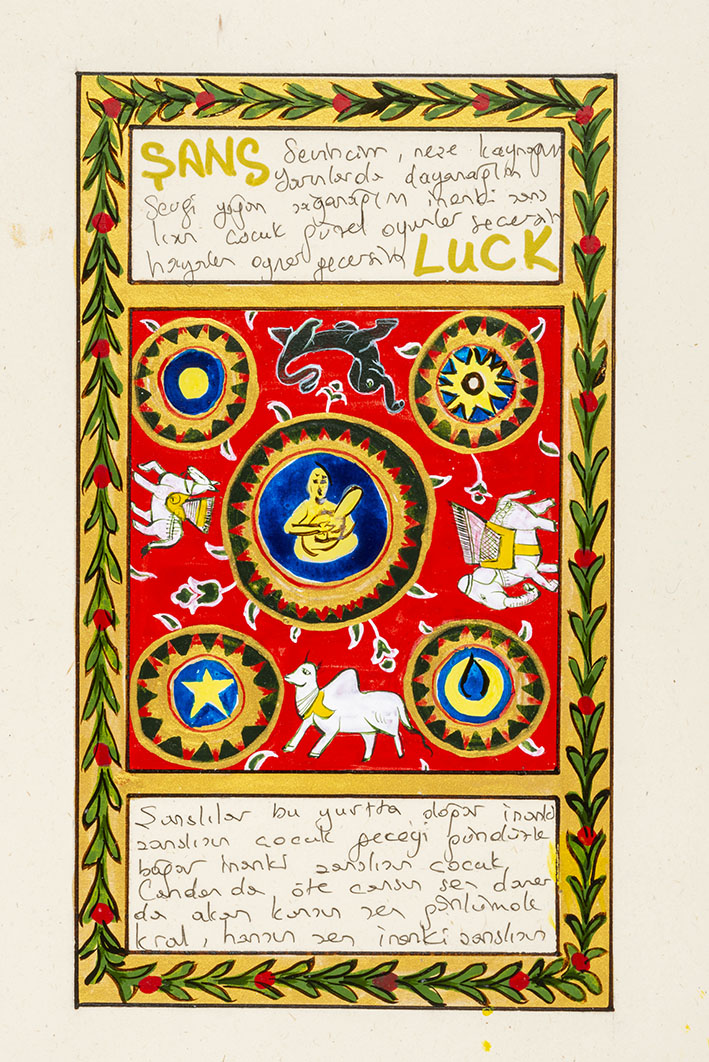 ŞANS Sevincim, neşe kaynağım
Yarınlarda dayanağım
Sevgi yağan sağanağım inanki şans
lısın çocuk güzel oyunlar seçersin
LUCK
Şanslılar bu yurtta doğar inanki
şanslısın çocuk geceği gündüzle
boğar inanki şanslısın çocuk
Candan da öte cansın sen damar
da akan kansın sen gönlümde
kral, hansın sen inanki şanslısın